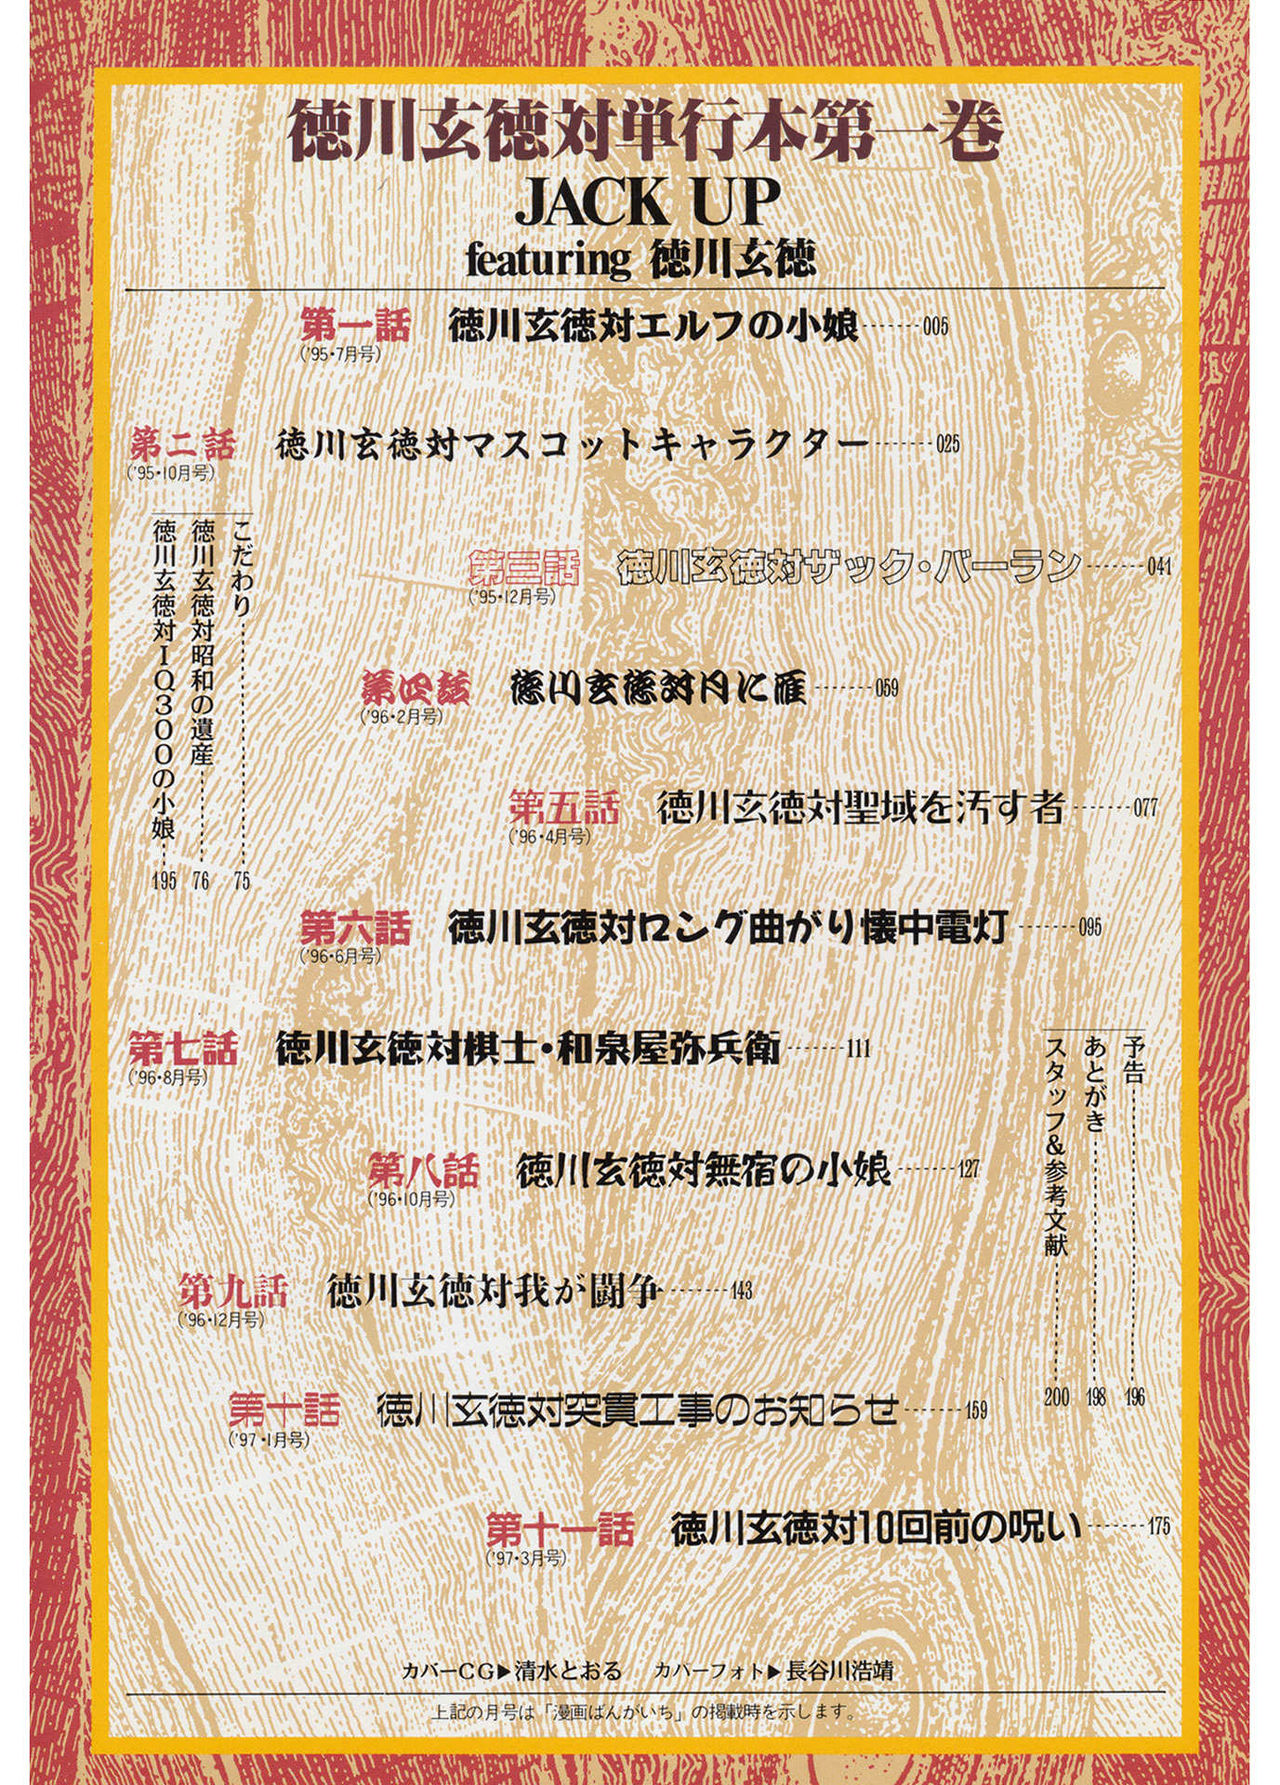 徳川玄徳対単行本第一巻
JACK UP
featuring 徳川玄徳
第一話 徳川玄徳対エルフの小娘-------005
('95・7月号)
第二話 徳川玄徳対マスコットキャラクター-------025
('95・10月号)
こだわり 75
徳川玄徳対昭和の遺産 76
徳川玄徳対IQ300の小娘 195
第三話 徳川玄徳対ザック・バーラン-------041
('95・12月号)
第四話 徳川玄徳対月に雁-------059
('96・2月号)
第五話 徳川玄徳対聖域を汚す者-------077
('96・4月号)
第六話 徳川玄徳対ロング曲がり懐中電灯-------095
('96・6月号)
第七話 徳川玄徳対棋士・和泉屋弥兵衛-------111
('96・8月号)
第八話 徳川玄徳対無宿の小娘-------127
('96・10月号)
第九話 徳川玄徳対我が闘争-------143
('96・12月号)
第十話 徳川玄徳対突貫工事のお知らせ-------159
('97・1月号)
予告 196
あとがき 198
スタッフ&参考文献 200
第十一話 徳川玄徳対10回前の呪い-------175
('97・3月号)
カバーCG▶清水とおる カバーフォト▶長谷川浩靖
上記の月号は「漫画ばんがいち」の掲載時を示します。